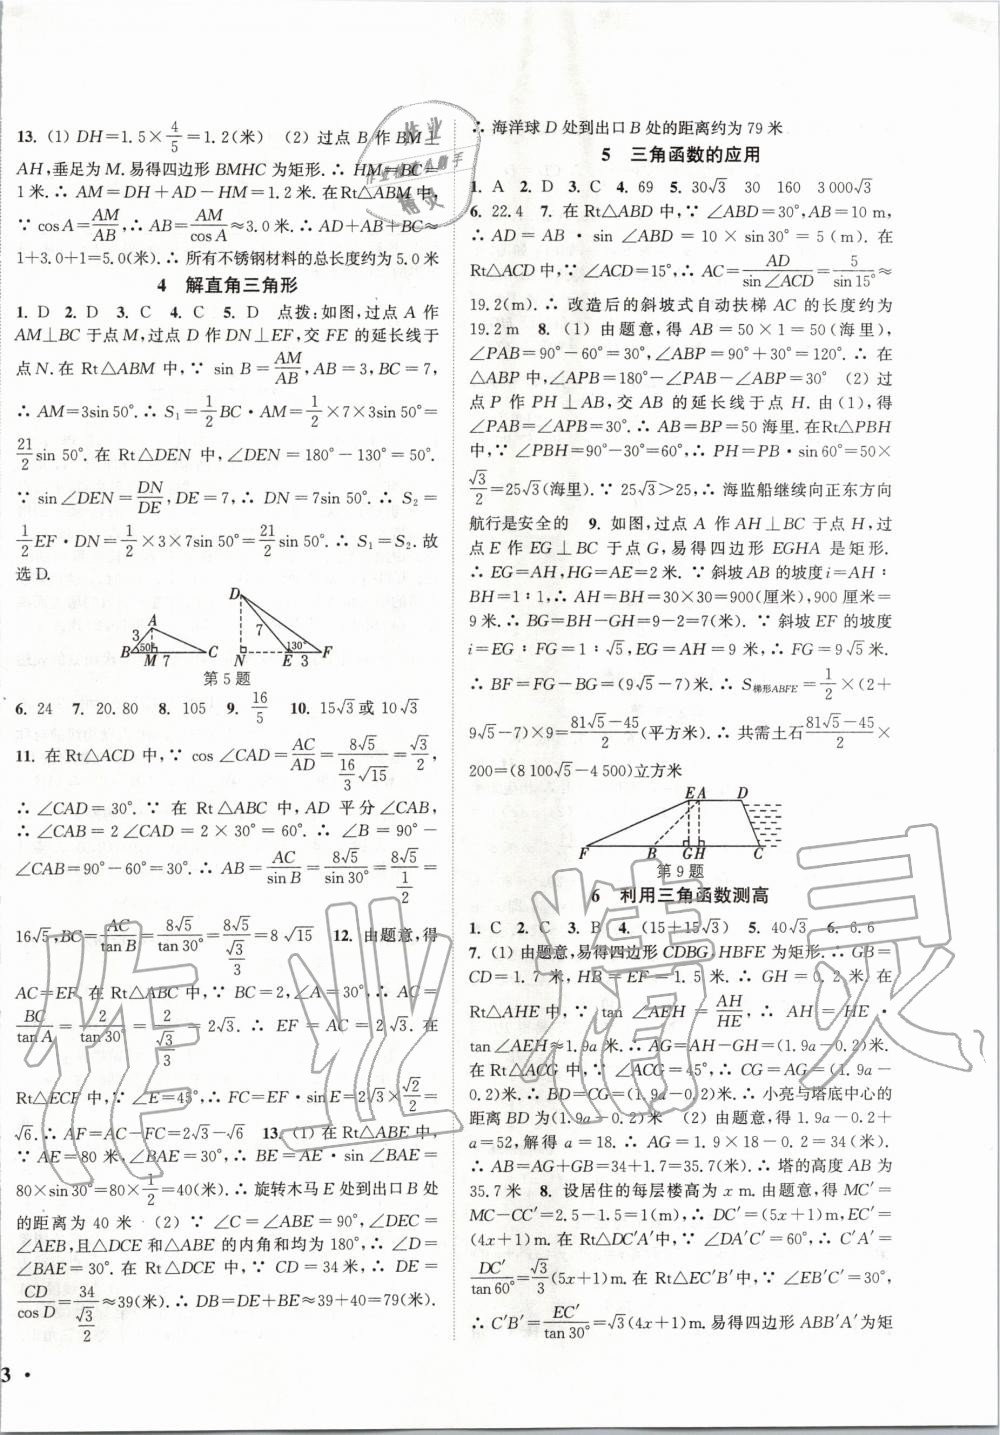 13. (1) DH=1.5×4/5=1.2(米) (2) 过点 B 作 BM⊥
AH,垂足为 M.易得四边形 BMHC 为矩形.∴ HM=BC=
1米.∴ AM=DH+AD-HM=1.2米.在Rt△ABM中,
∵ cosA=AM/AB,∴ AB=AM/cosA≈3.0米.∴ AD+AB+BC≈
1+3.0+1=5.0(米).∴ 所有不锈钢材料的总长度约为 5.0 米
4 解直角三角形
1. D 2. D 3. C 4. C 5. D 点拨:如图,过点 A 作
AM⊥BC 于点 M,过点 D 作 DN⊥EF,交 FE 的延长线于
点N.在 Rt△ABM 中,∵ sin B=AM/AB,AB=3,BC=7,
∴ AM=3sin 50°.∴ S₁=1/2BC·AM=1/2×7×3sin 50°=
21/2sin 50°.在 Rt△DEN 中,∠DEN=180°-130°=50°.
∵ sin∠DEN=DN/DE,DE=7,∴ DN=7sin 50°.∴ S₂=
1/2EF·DN=1/2×3×7sin 50°=21/2sin 50°.∴ S₁=S₂.故
选D.
A 3 50° B M 7 C D 7 130° N E 3 F
第 5 题
6. 24 7. 20.80 8. 105 9. 16/5 10. 15√3或 10√3
11. 在 Rt△ACD 中,∵ cos∠CAD=AC/AD=8√5/(16/3√15)=√3/2,
∴ ∠CAD=30°.∵ 在 Rt△ABC 中,AD 平分∠CAB,
∴ ∠CAB=2∠CAD=2×30°=60°.∴ ∠B=90°-
∠CAB=90°-60°=30°.∴ AB=AC/sin B=8√5/sin30°=8√5/(1/2)=
16√5,BC=AC/tan B=8√5/tan30°=8√5/(√3/3)=8√15 12. 由题意,得
AC=EF.在 Rt△ABC 中,∵ BC=2,∠A=30°,∴ AC=
BC/tan A=2/tan30°=2/(√3/3)=2√3.∴ EF=AC=2√3.∴ 在
Rt△ECF 中,∵ ∠E=45°,∴ FC=EF·sin E=2√3×√2/2=
√6.∴ AF=AC-FC=2√3-√6 13. (1) 在 Rt△ABE 中,
∵ AE=80 米,∠BAE=30°,∴ BE=AE·sin∠BAE=
80×sin30°=80×1/2=40(米).∴ 旋转木马 E 处到出口 B 处
的距离为 40 米 (2) ∵ ∠C=∠ABE=90°,∠DEC=
∠AEB,且△DCE 和△ABE 的内角和均为 180°,∴ ∠D=
∠BAE=30°.在 Rt△DCE 中,∵ CD=34 米,∴ DE=
CD/cos D=34/(√3/2)≈39(米).∴ DB=DE+BE≈39+40=79(米).
3 ·
∴ 海洋球 D 处到出口 B 处的距离约为 79 米
5 三角函数的应用
1. A 2. D 3. C 4. 69 5. 30√3 30 160 3 000√3
6. 22.4 7. 在 Rt△ABD 中,∵ ∠ABD=30°,AB=10 m,
∴ AD=AB·sin∠ABD=10×sin30°=5(m).在
Rt△ACD 中,∵ ∠ACD=15°,∴ AC=AD/sin∠ACD=5/sin15°≈
19.2(m).∴ 改造后的斜坡式自动扶梯 AC 的长度约为
19.2 m 8. (1) 由题意,得 AB=50×1=50(海里),
∠PAB=90°-60°=30°,∠ABP=90°+30°=120°.∴ 在
△ABP 中,∠APB=180°-∠PAB-∠ABP=30° (2) 过
点 P 作 PH⊥AB,交 AB 的延长线于点 H.由(1),得
∠PAB=∠APB=30°.∴ AB=BP=50海里.在Rt△PBH
中,∵ ∠PBH=90°-30°=60°,∴ PH=PB·sin60°=50×
√3/2=25√3(海里).∵ 25√3>25,∴ 海监船继续向正东方向
航行是安全的 9. 如图,过点 A 作 AH⊥BC 于点 H,过
点 E 作 EG⊥BC 于点 G,易得四边形 EGHA 是矩形.
∴ EG=AH,HG=AE=2米.∵ 斜坡AB的坡度i=AH∶
BH=1∶1,∴ AH=BH=30×30=900(厘米),900厘米=
9米.∴ BG=BH-GH=9-2=7(米).∵ 斜坡 EF 的坡度
i=EG∶FG=1∶√5,EG=AH=9 米,∴ FG=9√5米.
∴ BF=FG-BG=(9√5-7)米.∴ S梯形ABFE=1/2×(2+
9√5-7)×9=(81√5-45)/2(平方米).∴ 共需土石(81√5-45)/2×
200=(8 100√5-4 500)立方米
E A D F B G H C
第 9 题
6 利用三角函数测高
1. C 2. C 3. B 4. (15+15√3) 5. 40√3 6. 6.6
7. (1) 由题意,易得四边形 CDBG、HBFE 为矩形.∴ GB=
CD=1.7 米,HB=EF=1.5 米.∴ GH=0.2 米.在
Rt△AHE 中,∵ tan∠AEH=AH/HE,∴ AH=HE·
tan∠AEH≈1.9a 米.∴ AG=AH-GH=(1.9a-0.2)米.
在 Rt△ACG 中,∵ ∠ACG=45°,∴ CG=AG=(1.9a-
0.2)米.∴ BD=CG=(1.9a-0.2)米.∴ 小亮与塔底中心的
距离 BD 为(1.9a-0.2)米 (2) 由题意,得 1.9a-0.2+
a=52,解得 a=18.∴ AG=1.9×18-0.2=34(米).
∴ AB=AG+GB=34+1.7=35.7(米).∴ 塔的高度 AB 为
35.7米 8. 设居住的每层楼高为 x m.由题意,得 MC′=
MC-CC′=2.5-1.5=1(m),∴ DC′=(5x+1)m,EC′=
(4x+1)m.在 Rt△DC′A′中,∵ ∠DA′C′=60°,∴ C′A′=
DC′/tan60°=√3/3(5x+1)m.在 Rt△EC′B′中,∵ ∠EB′C′=30°,
∴ C′B′=EC′/tan30°=√3(4x+1)m.易得四边形 ABB′A′为矩
作业精灵